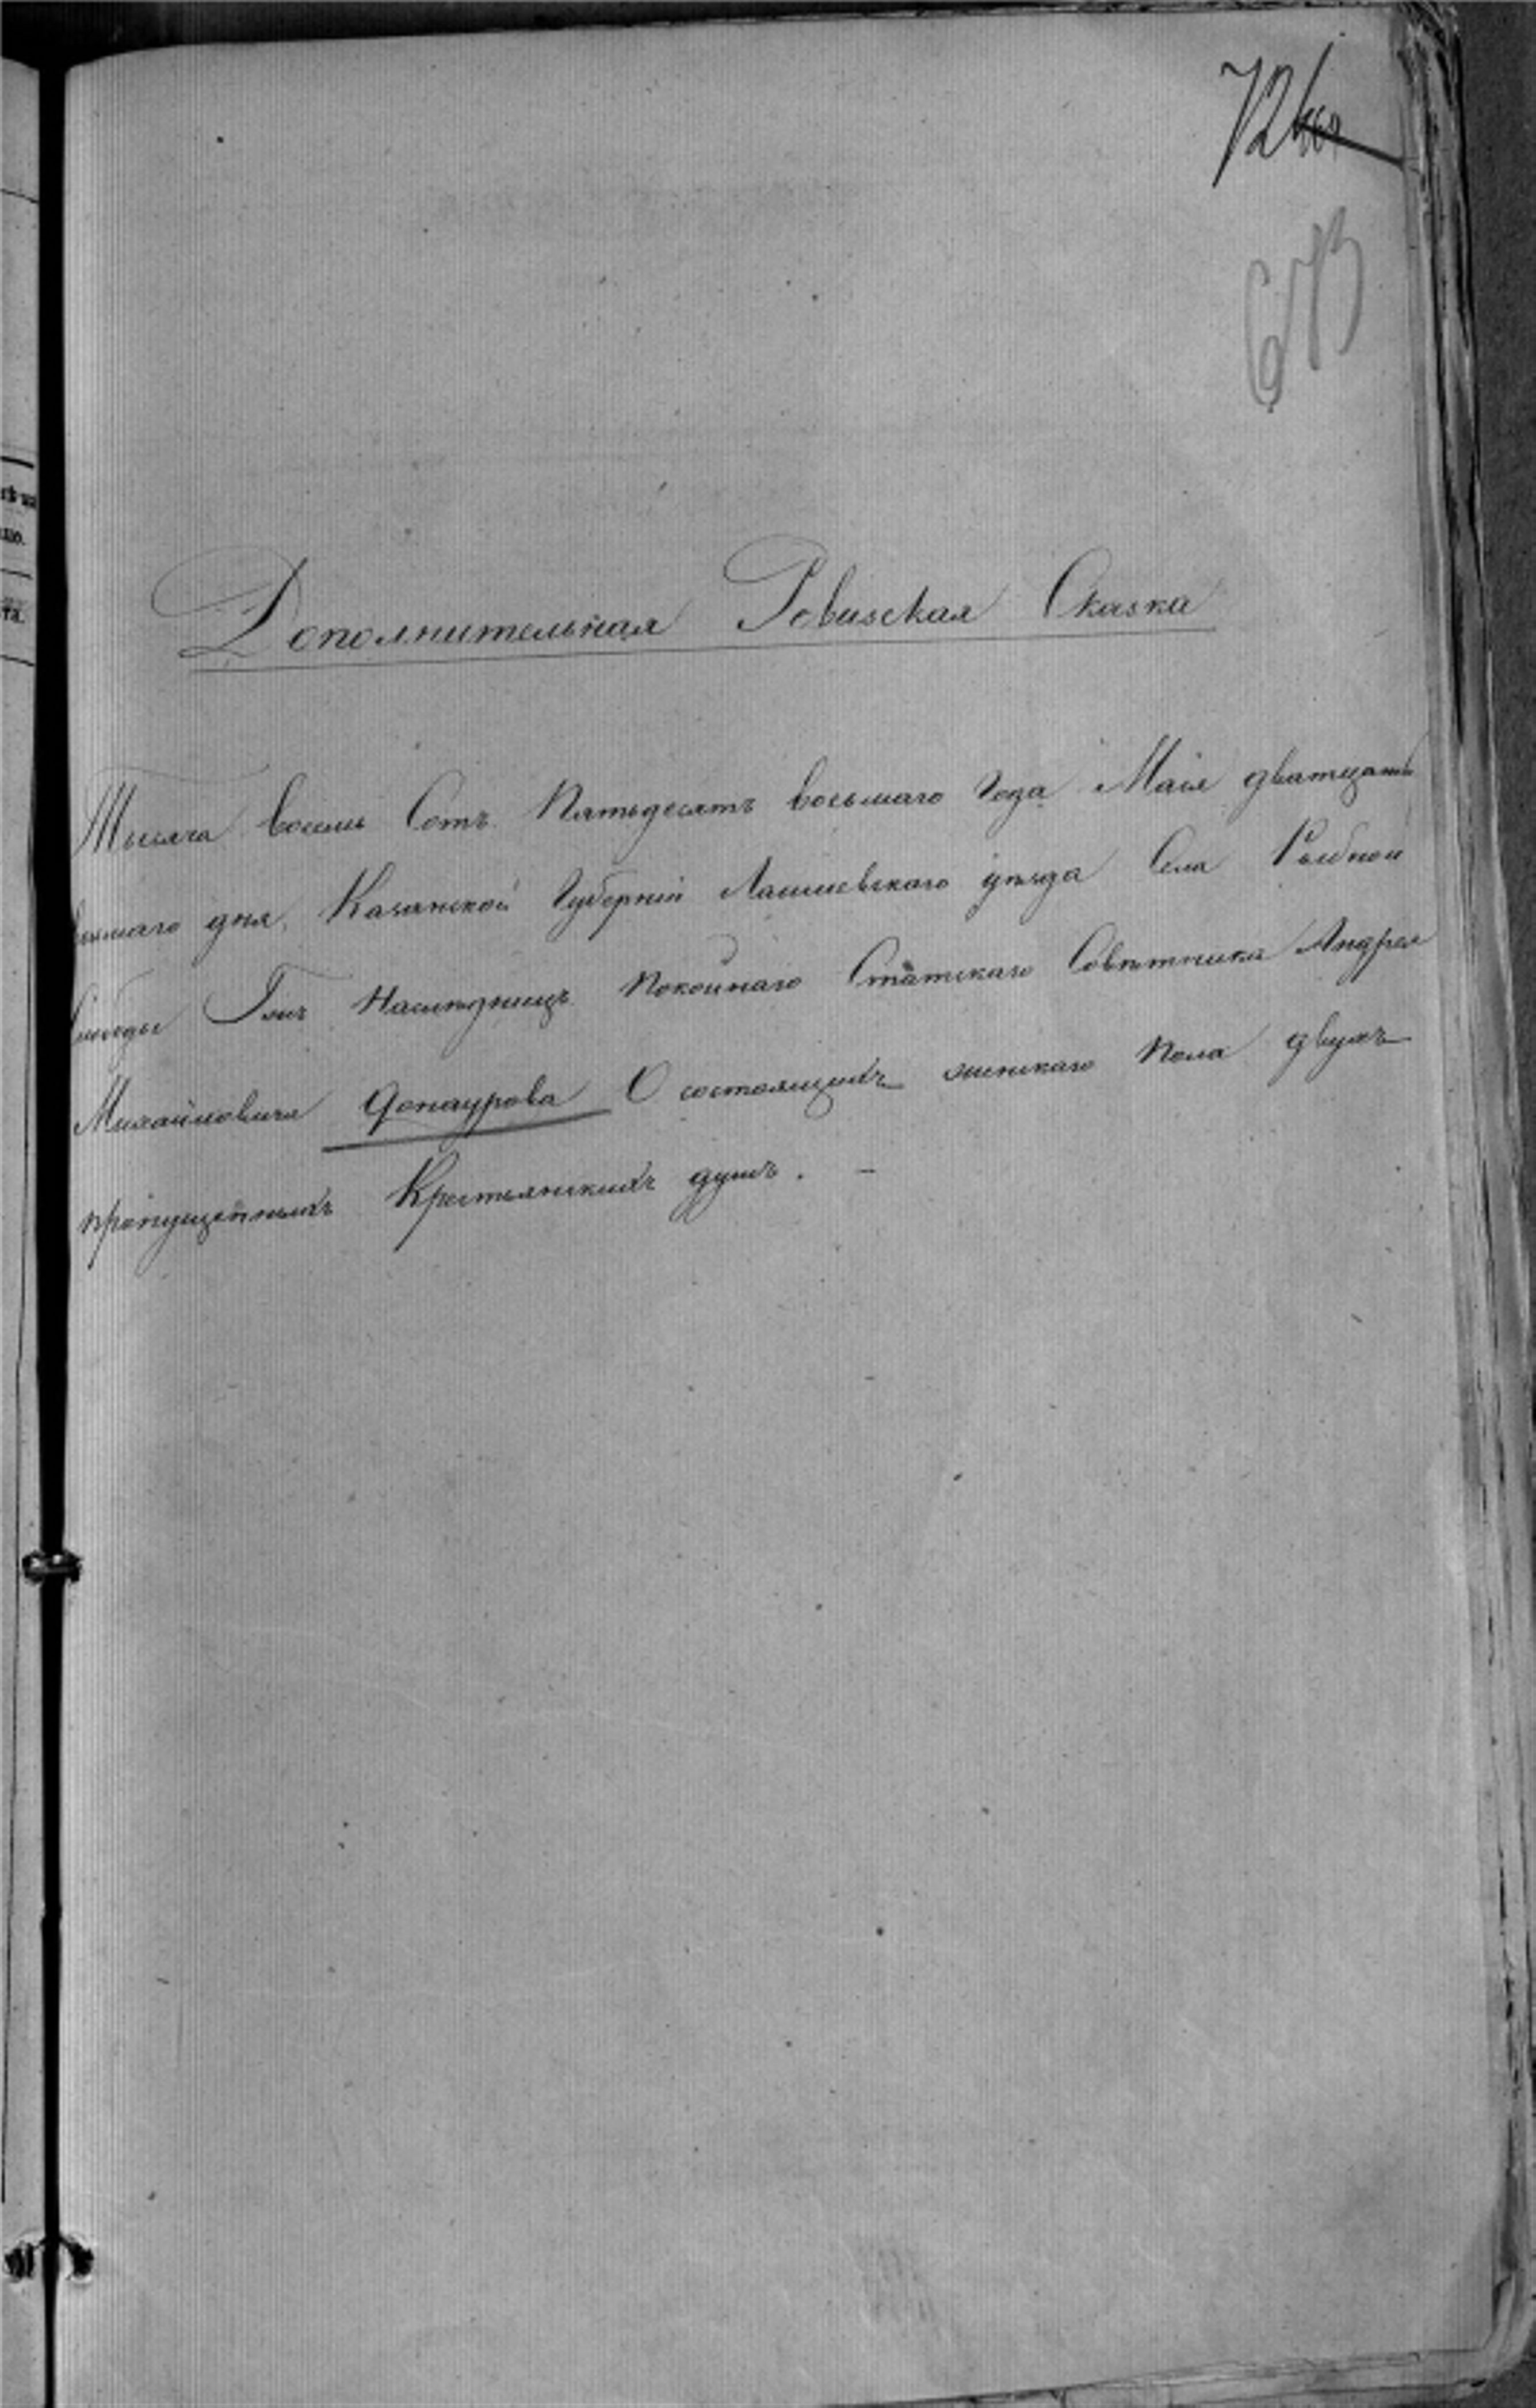 72
673
Дополнительная Ревизская Сказка
Тысяча восемь Сотъ Пятьдесятъ восьмаго Года Маія дватцать
восьмаго дня, Казанской Губерніи Лаишевскаго уѣзда Села Рыбной
слободы Г-жъ Наслѣдницъ покойнаго Статскаго Совѣтника Андрея
Михайловича Донаурова О состоящихъ женскаго пола двухъ
пропущенныхъ Крестьянскихъ душъ. –
та.